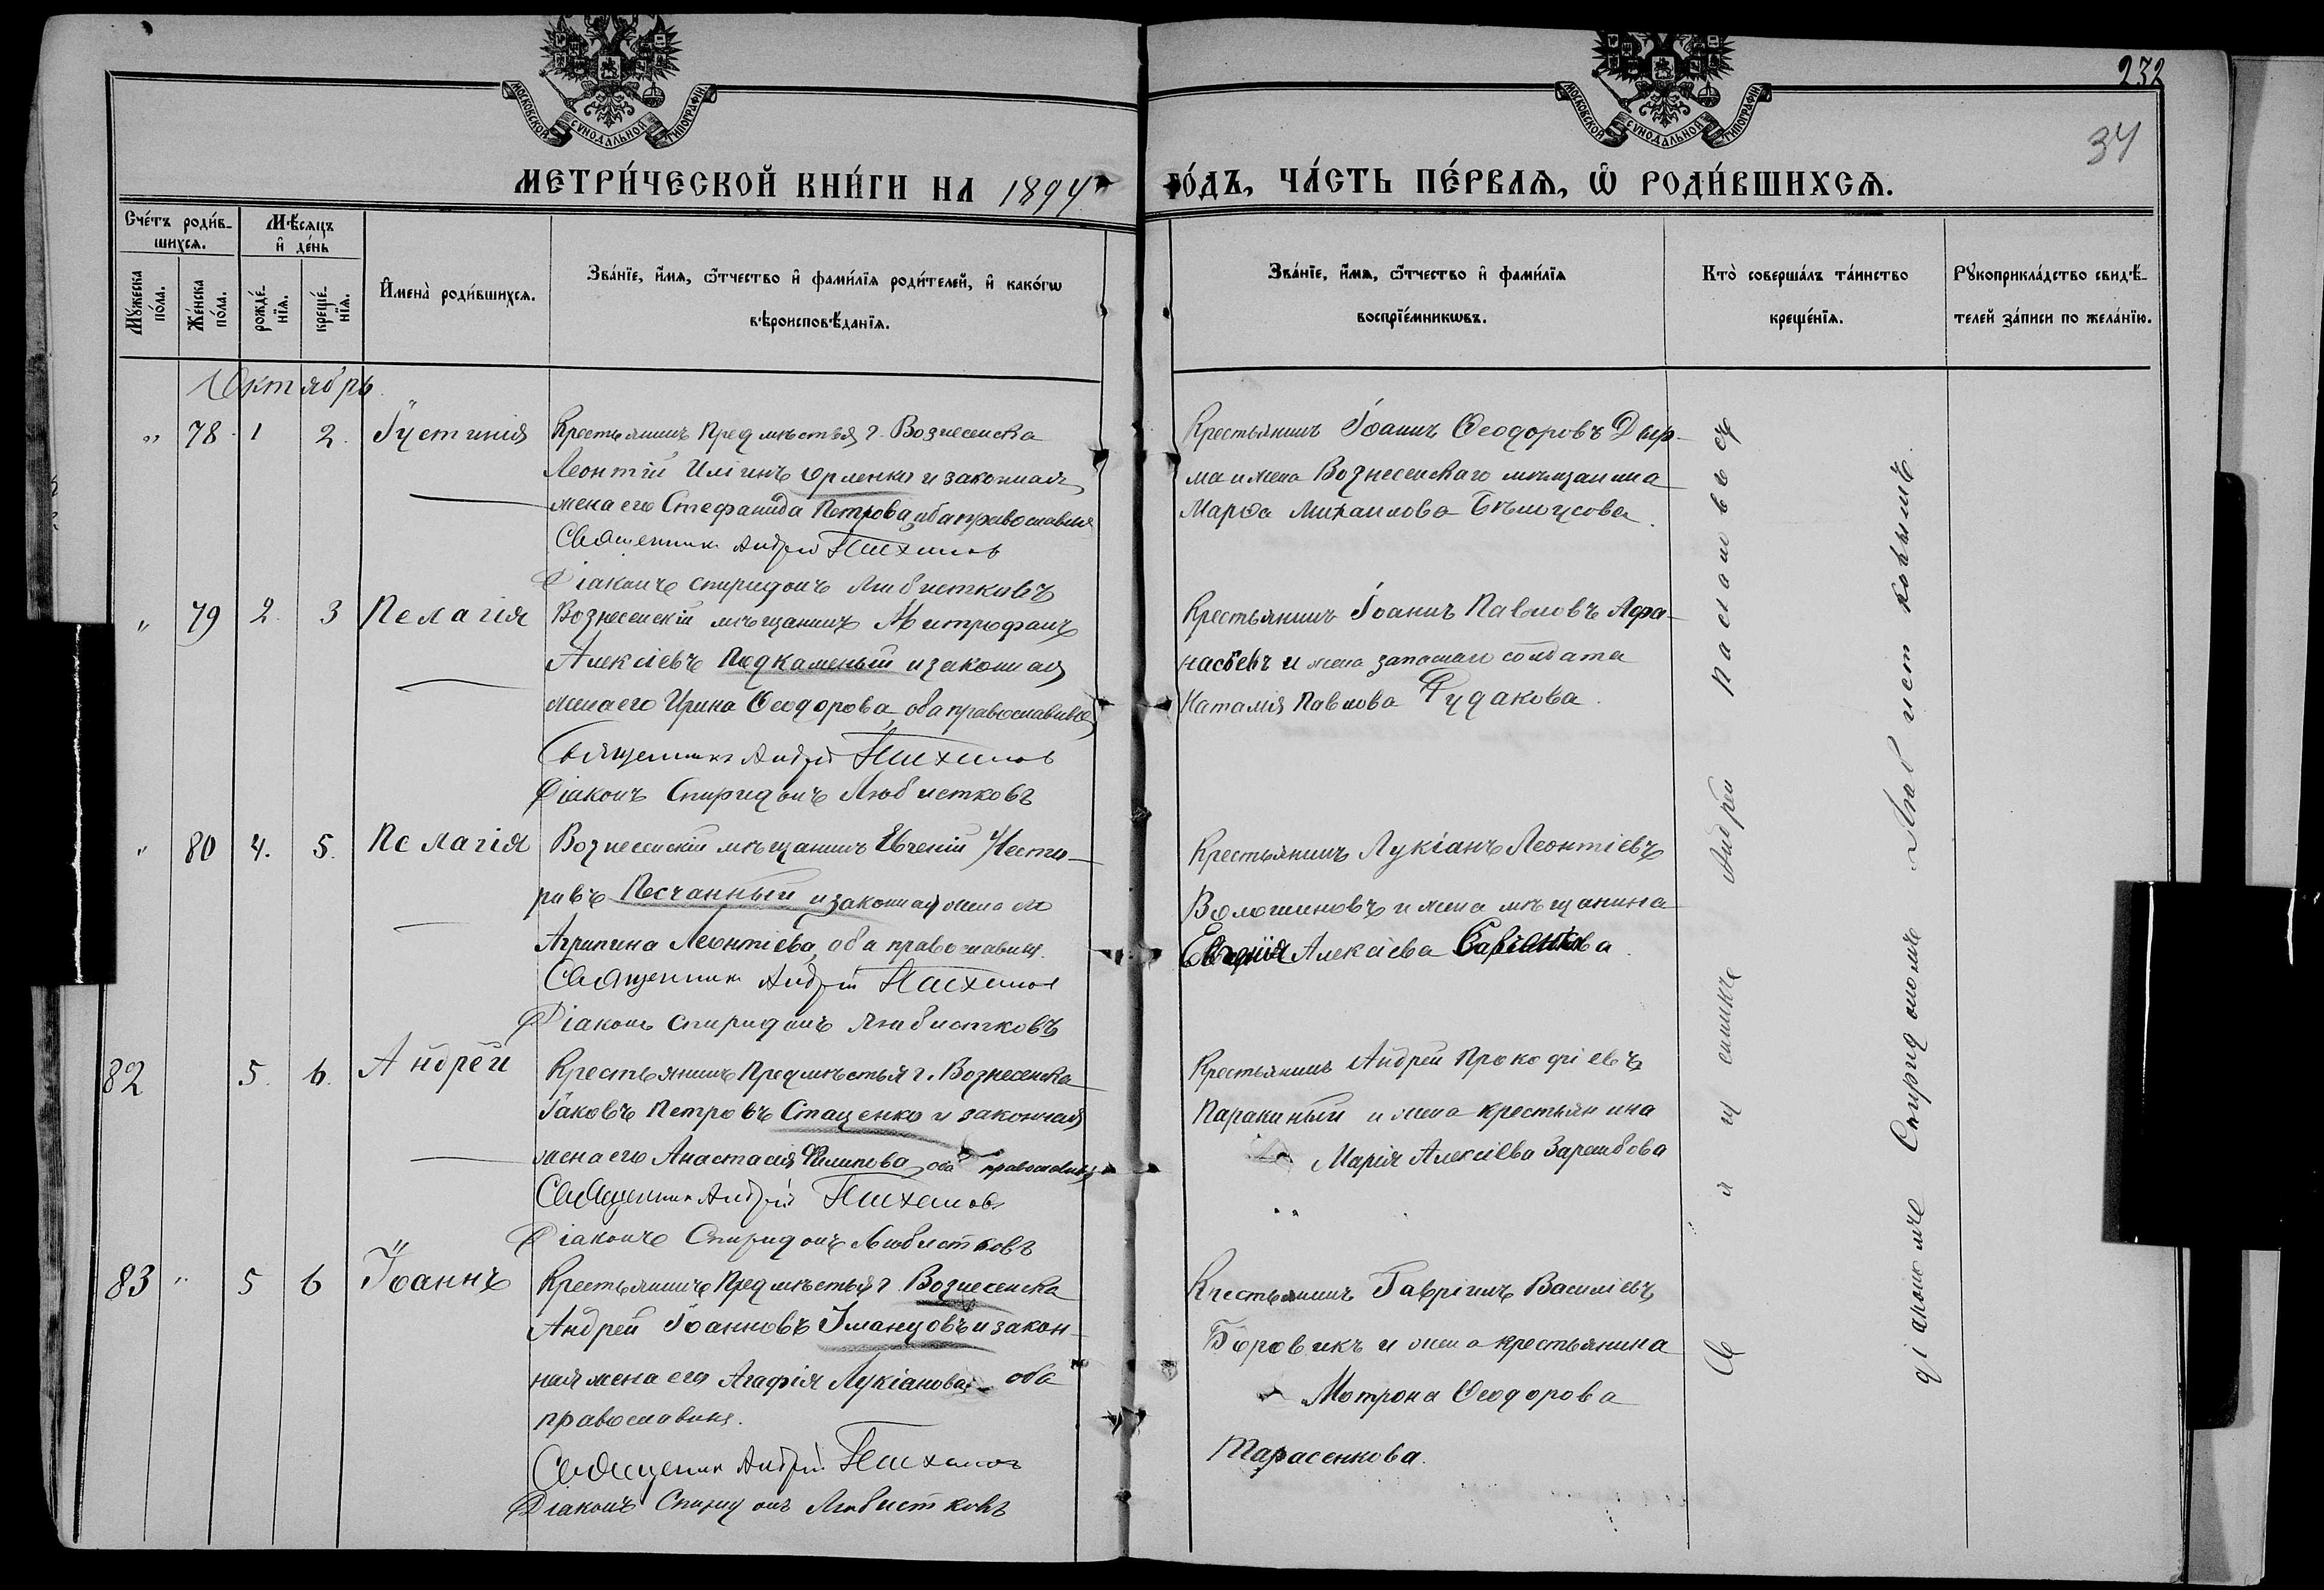 МОСКОВСКОЙ СѴНОДАЛЬНОЙ ТИПОГРАФІИ
МОСКОВСКОЙ СѴНОДАЛЬНОЙ ТИПОГРАФІИ
232
34
МЕТРИ́ЧЕСКОЙ КНИ́ГИ НА 1894 го́дъ, ЧА́СТЬ ПЕ́РВАѦ, Ѿ РОДИ́ВШИХСѦ.
Сче́тъ роди́в-
шихсѧ.
Мѣ́сѧцъ
и҆ де́нь
Мꙋ́жеска по́ла.
Же́нска по́ла.
рожде́-нїѧ.
креще́-нїѧ.
И҆мена̀ роди́вшихсѧ.
Зва́нїе, и҆́мѧ, ѻ҆́тчество и҆ фами́лїѧ роди́телей, и҆ како́гѡ
вѣроисповѣ́данїѧ.
Зва́нїе, и҆́мѧ, ѻ҆́тчество и҆ фами́лїѧ
воспрїе́мникѡвъ.
Кто̀ соверша́лъ та́инство
креще́нїѧ.
Рꙋкоприкла́дство свидѣ́-
телей за́писи по жела́нїю.
Октябрь
" 78 1 2. Іустинія
Крестьянинъ Предмѣстья г. Вознесенска
Леонтій Иліинъ Юрленко и законная
жена его Стефанида Петрова, оба православные
Священникъ Андрей
Діаконъ Спиридонъ Любистковъ
Крестьянинъ Іоаннъ Ѳеодоровъ Дыр-
ма и жена Вознесенскаго мѣщанина
Марѳа Михаилова Бѣлоусова.
" 79 2 3 Пелагія
Вознесенскій мѣщанинъ Митрофанъ
Алексіевъ Подкаменый и законная
жена его Ирина Ѳеодорова, оба православные
Священникъ Андрей
Діаконъ Спиридонъ Любистковъ
Крестьянинъ Іоаннъ Павловъ Афа-
насьевъ и жена запаснаго солдата
Наталія Павлова Рудакова.
" 80 4. 5. Пелагія
Вознесенскій мѣщанинъ Евгеній Несто-
ровъ Песчанный и законная жена его
Агрипина Леонтіева, оба православные.
Священникъ Андрей
Діаконъ Спиридонъ Любистковъ
Крестьянинъ Лукіанъ Леонтіевъ
Волошиновъ и жена мѣщанина
Алексіева
82 5. 6. Андрей
Крестьянинъ Предмѣстья г. Вознесенска
Іаковъ Петровъ Стаценко и законная
жена его Анастасія Филипова, оба православные
Священникъ Андрей
Діаконъ Спиридонъ Любистковъ
Крестьянинъ Андрей Прокофіевъ
Паракиный и жена крестьянина
Марія Алексіева Зарембова
83 " 5 6 Іоаннъ
Крестьянинъ Предмѣстья г. Вознесенска
Андрей Іоанновъ Іманцовъ и закон-
ная жена его Агафія Лукіанова, оба
православные.
Священникъ Андрей
Діаконъ Спиридонъ Любистковъ
Крестьянинъ Гавріилъ Василіевъ
Боровикъ и жена крестьянина
Мотрона Ѳеодорова
Тарасенкова.
Священникъ Андрей
діакономъ Спиридономъ Любистковымъ.